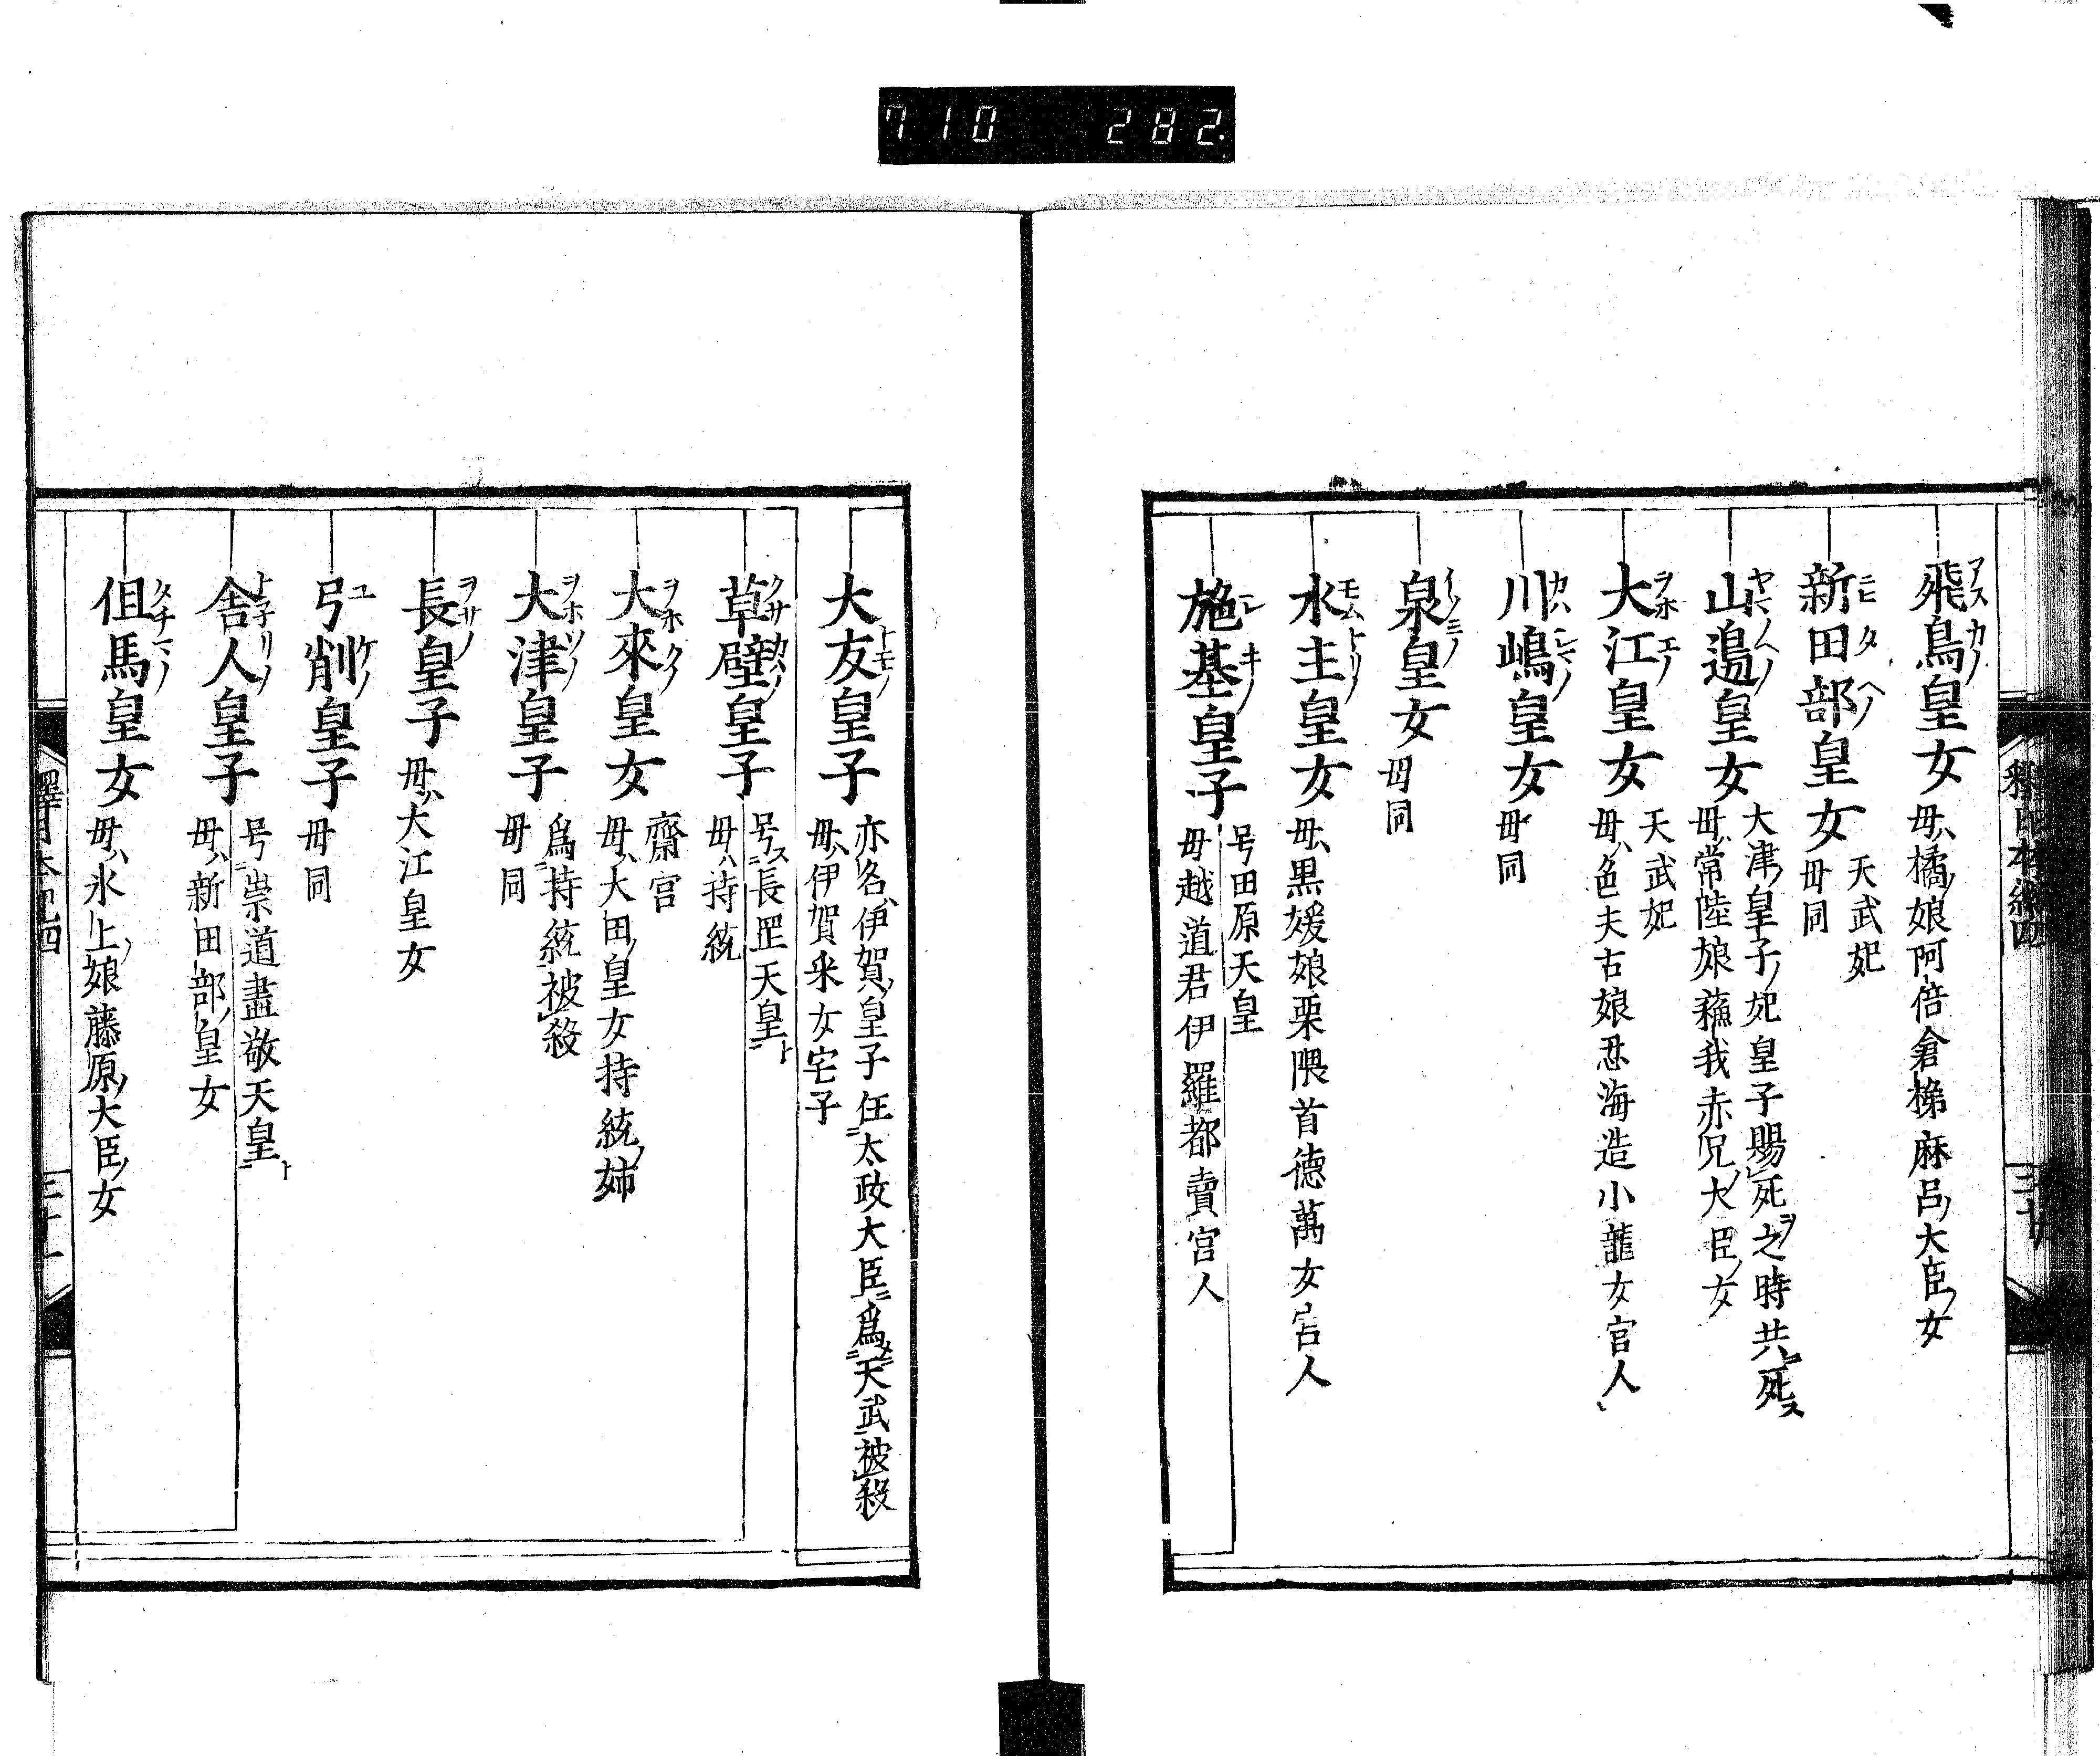 710 282.
飛鳥皇女 母ハ橘ノ娘阿倍倉梯麻呂ノ大臣ノ女
新田部皇女 天武妃
母同
山邊皇女 大津ノ皇子ノ妃皇子賜死之時共死
母ハ常陸娘蘓我赤兄ノ大臣ノ女
大江皇女 天武妃
母ハ色夫古娘忍海造小龍女宮人
川嶋皇女 母同
泉皇女 母同
水主皇女 母ハ黒媛娘栗隈首德萬女宮人
施基皇子 号田原天皇
母越道君伊羅都賣宮人
大友皇子 亦名ハ伊賀ノ皇子任太政大臣爲天武被殺
母ハ伊賀采女宅子
草壁皇子 号長罡天皇
母ハ持統
大來皇女 齋宮
母ハ大田ノ皇女持統ノ姉
大津皇子 爲持統被殺
母同
長皇子 母ハ大江皇女
弓削皇子 母同
舎人皇子 号崇道盡敬天皇
母ハ新田部ノ皇女
但馬皇女 母ハ氷上ノ娘藤原ノ大臣ノ女